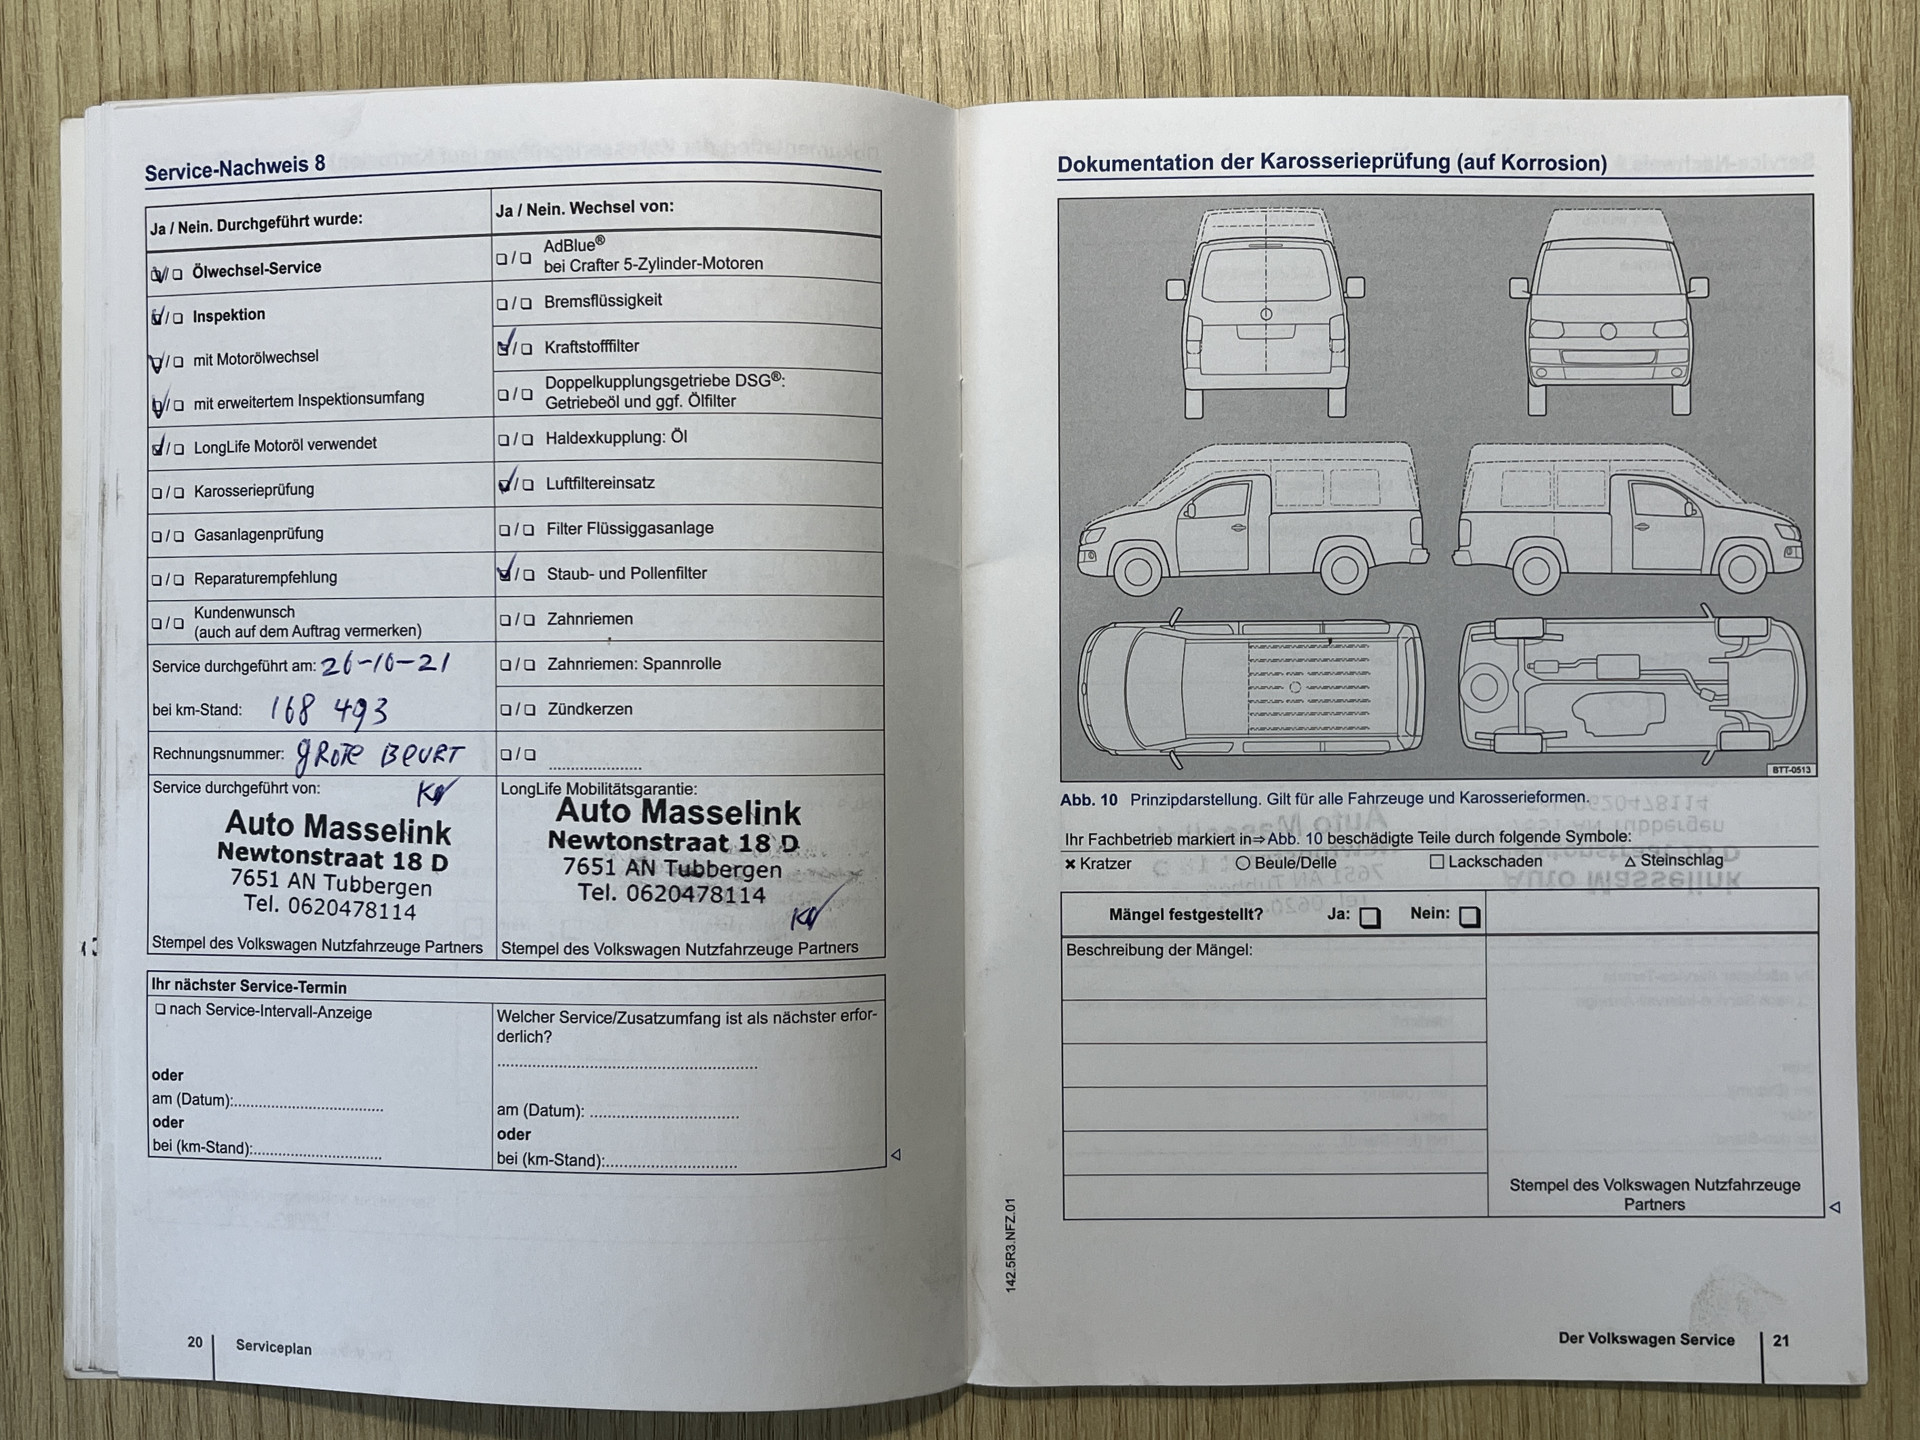 Service-Nachweis 8
Ja / Nein. Durchgeführt wurde:
Ölwechsel-Service
Inspektion
mit Motorölwechsel
mit erweitertem Inspektionsumfang
LongLife Motoröl verwendet
Karosserieprüfung
Gasanlagenprüfung
Reparaturempfehlung
Kundenwunsch
(auch auf dem Auftrag vermerken)
Service durchgeführt am: 26-10-21
bei km-Stand: 168 493
Rechnungsnummer: gROTE BEURT
Service durchgeführt von:
Auto Masselink
Newtonstraat 18 D
7651 AN Tubbergen
Tel. 0620478114
Stempel des Volkswagen Nutzfahrzeuge Partners
Ja / Nein. Wechsel von:
AdBlue®
bei Crafter 5-Zylinder-Motoren
Bremsflüssigkeit
Kraftstofffilter
Doppelkupplungsgetriebe DSG®:
Getriebeöl und ggf. Ölfilter
Haldexkupplung: Öl
Luftfiltereinsatz
Filter Flüssiggasanlage
Staub- und Pollenfilter
Zahnriemen
Zahnriemen: Spannrolle
Zündkerzen
LongLife Mobilitätsgarantie:
Auto Masselink
Newtonstraat 18 D
7651 AN Tubbergen
Tel. 0620478114
Stempel des Volkswagen Nutzfahrzeuge Partners
Ihr nächster Service-Termin
nach Service-Intervall-Anzeige
oder
am (Datum):
oder
bei (km-Stand):
Welcher Service/Zusatzumfang ist als nächster erfor-
derlich?
am (Datum):
oder
bei (km-Stand):
20 Serviceplan
Dokumentation der Karosserieprüfung (auf Korrosion)
BTT-0513
Abb. 10 Prinzipdarstellung. Gilt für alle Fahrzeuge und Karosserieformen.
Ihr Fachbetrieb markiert in⇒Abb. 10 beschädigte Teile durch folgende Symbole:
× Kratzer ○ Beule/Delle □ Lackschaden △ Steinschlag
Mängel festgestellt? Ja: Nein:
Beschreibung der Mängel:
Stempel des Volkswagen Nutzfahrzeuge
Partners
142.5R3.NFZ.01
Der Volkswagen Service 21